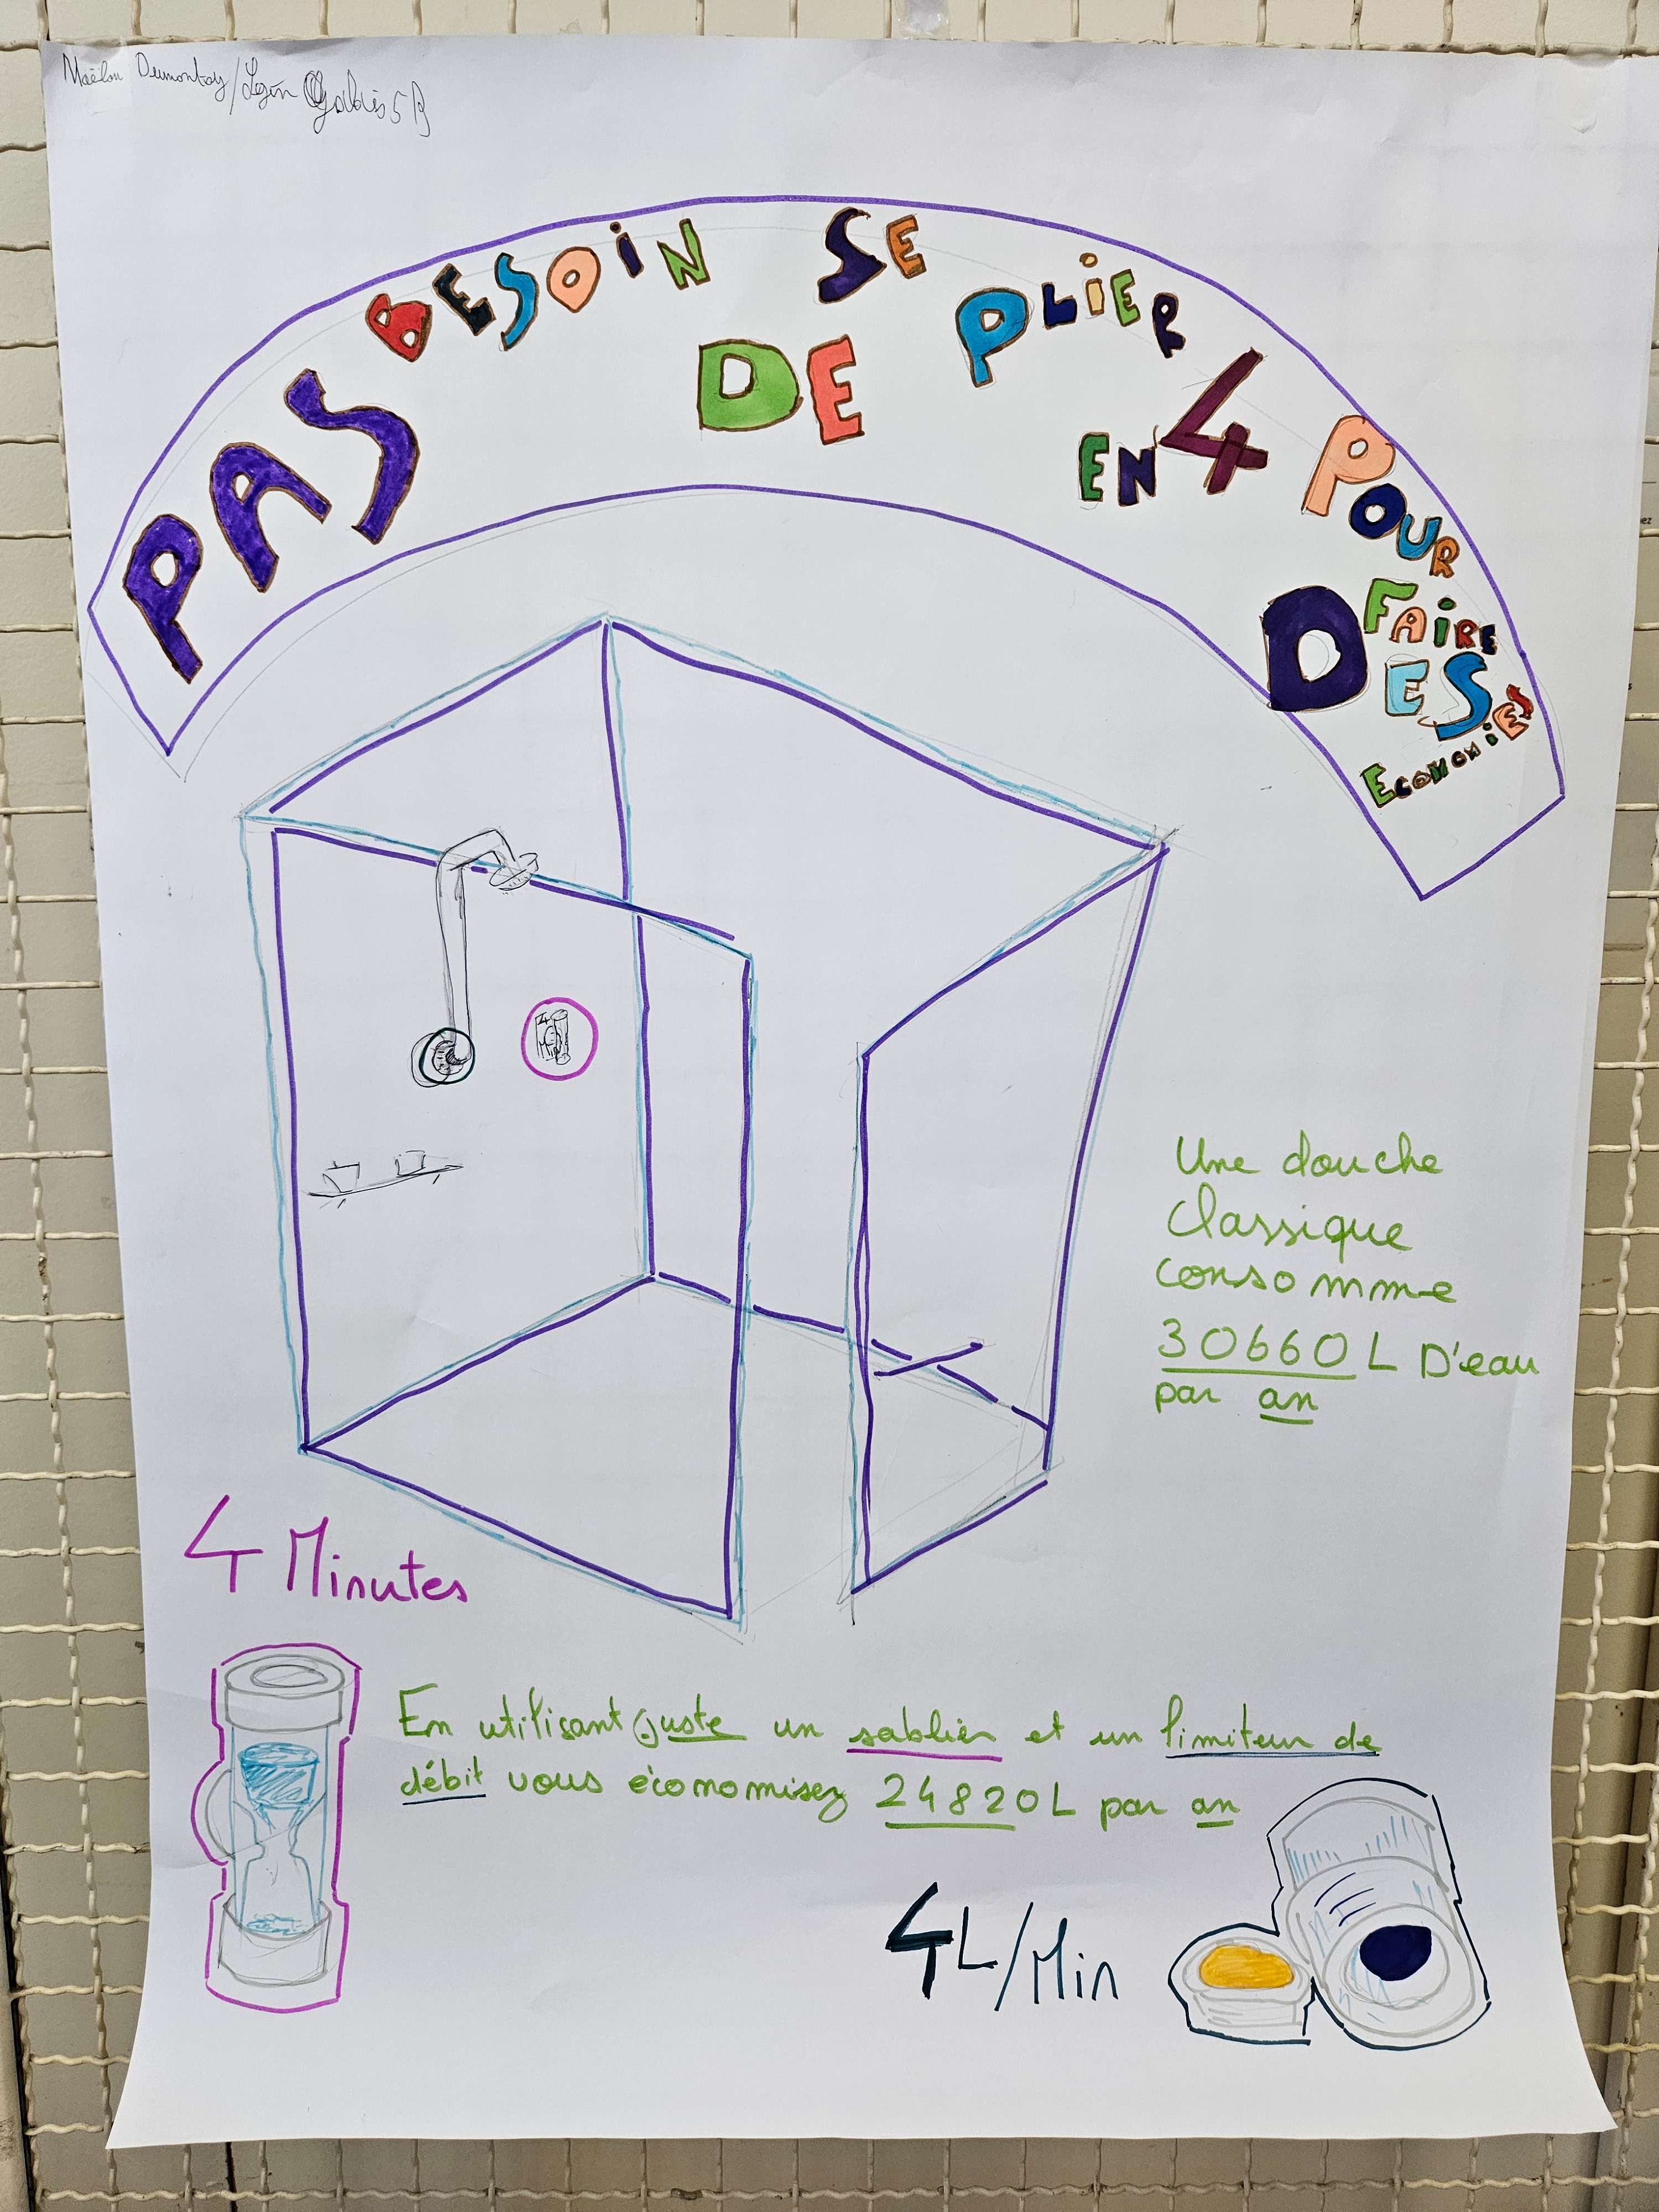 Maëlou Dumontay/ 5B
PAS BESOIN DE SE PLIER EN 4 POUR FAIRE DES ECONOMIES
Une douche
classique
consomme
30660 L D'eau
par an
4 Minutes
En utilisant juste un sablier et un limiteur de
débit vous économisez 24820L par an
4L/Min